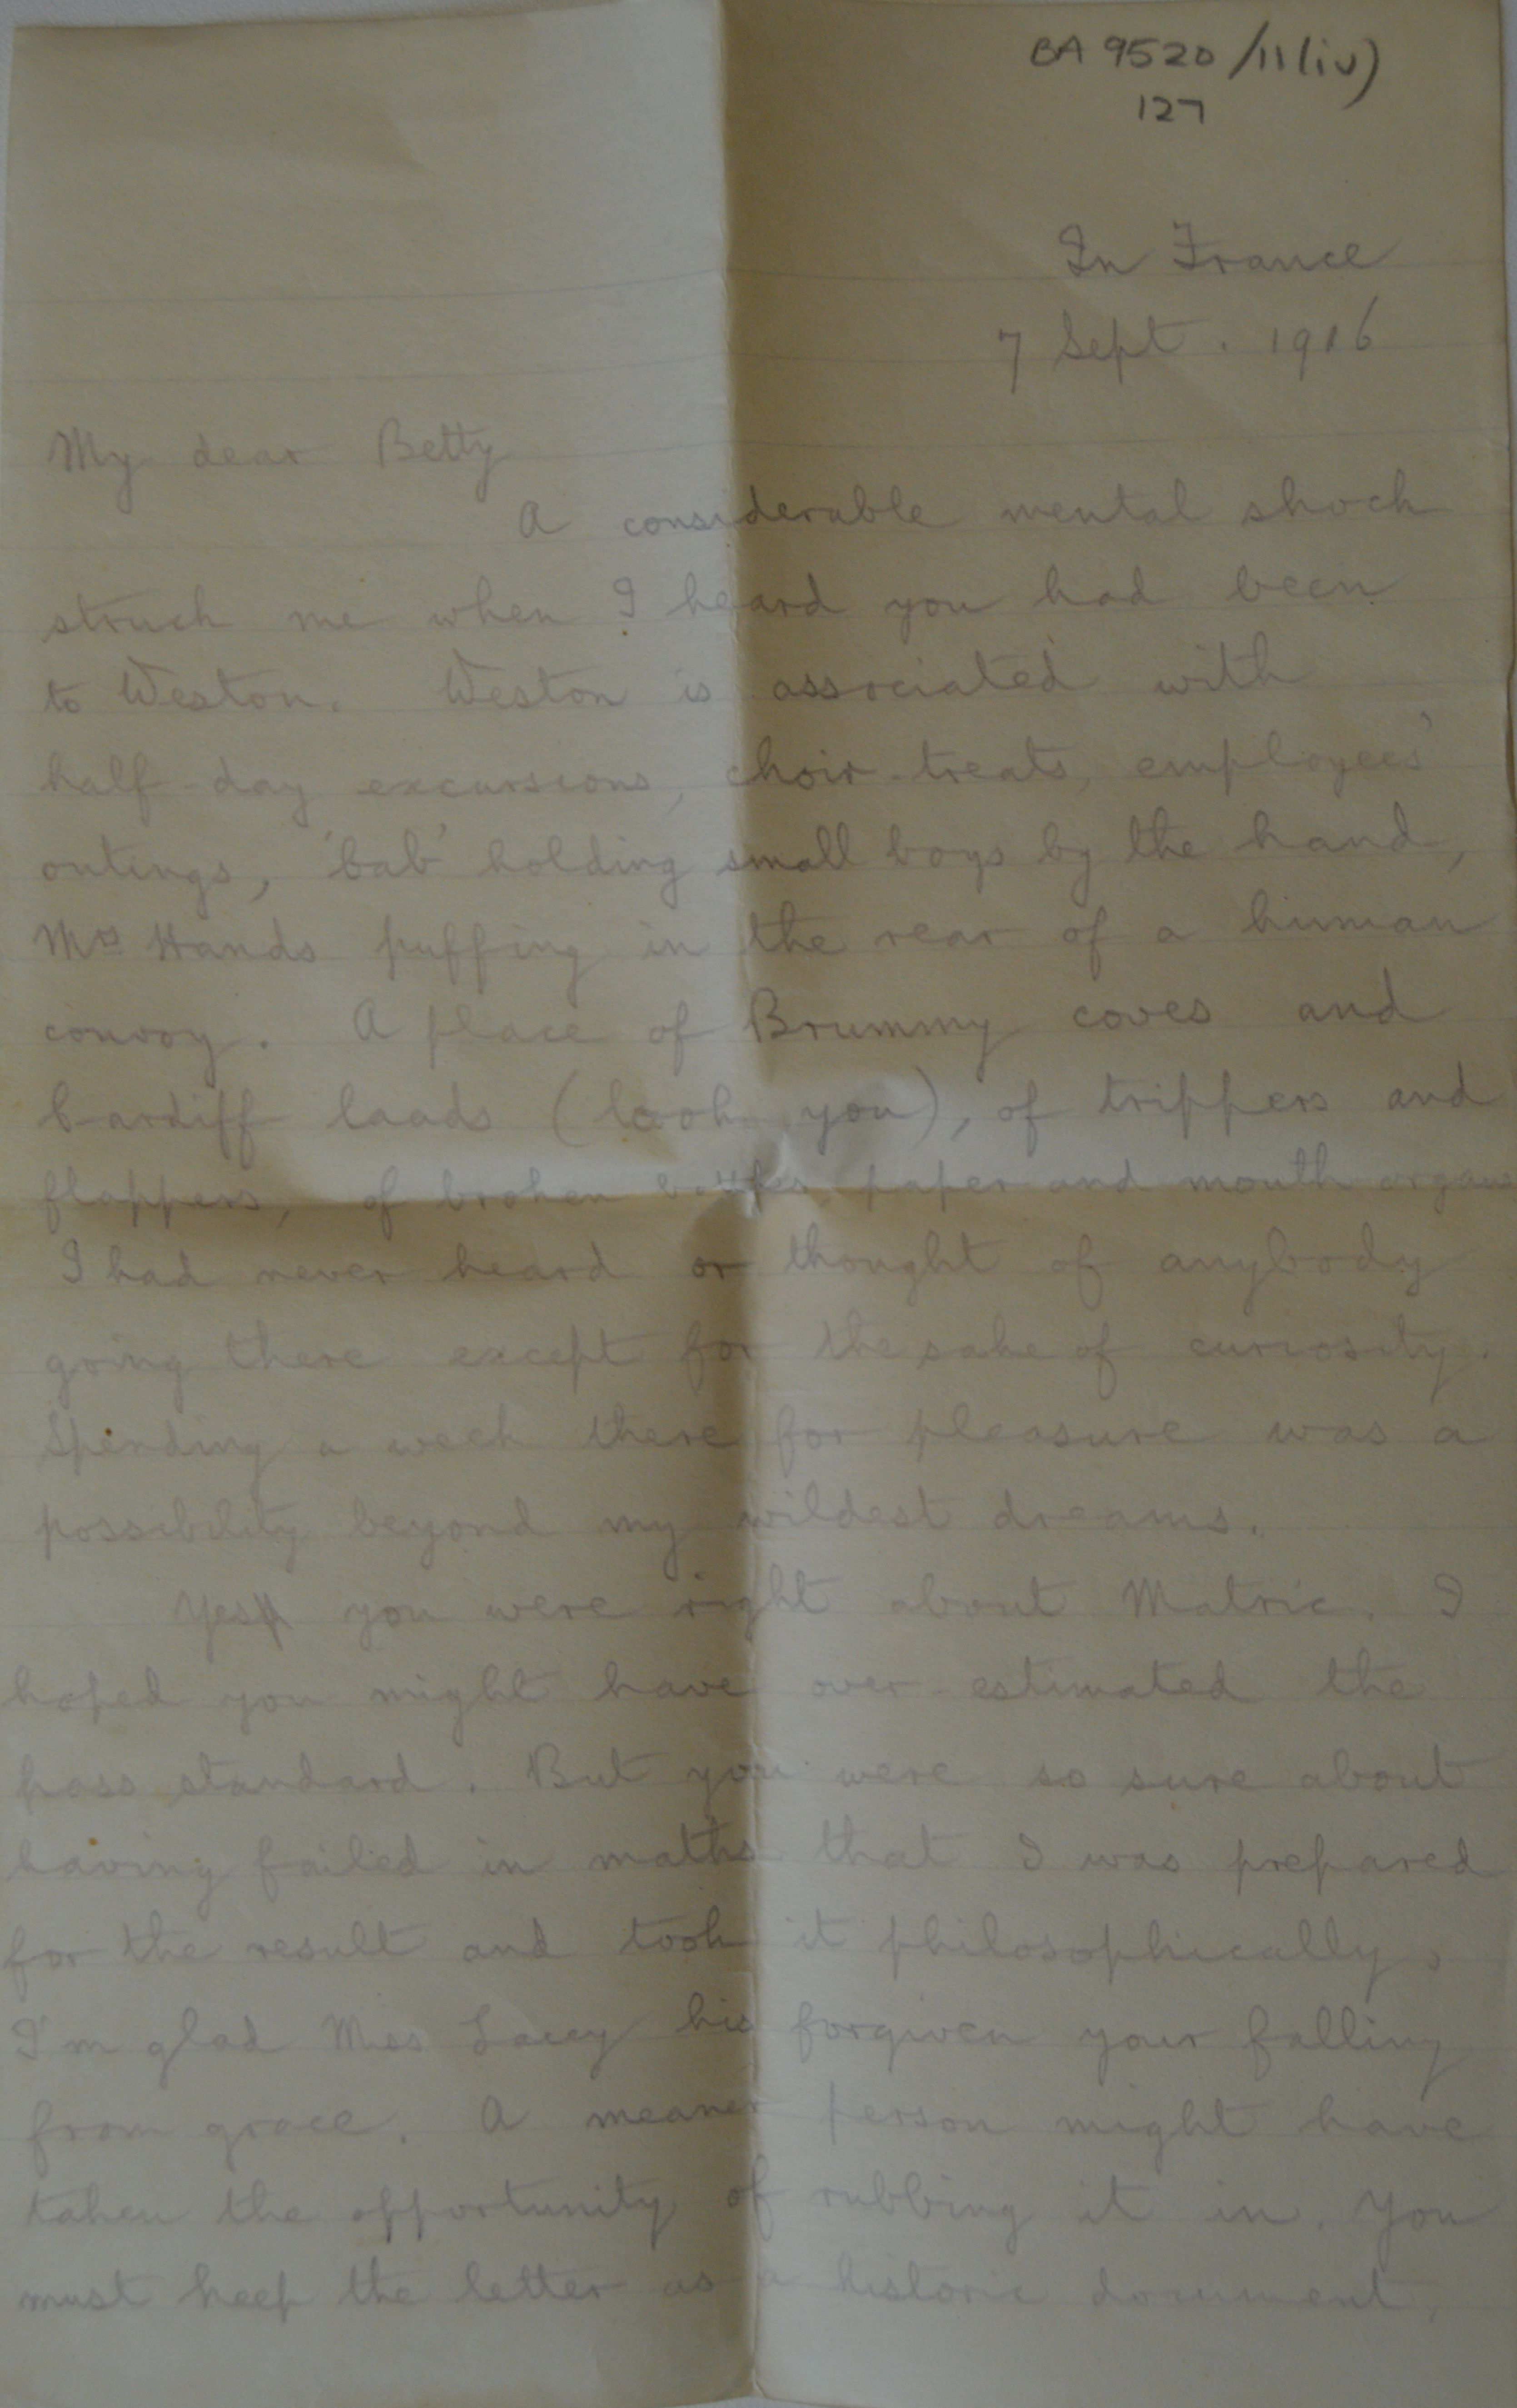 BA 9520/11(iv)
127
In France
7 Sept. 1916
My dear Betty
A considerable mental shock
struck me when I heard you had been
to Weston. Weston is associated with
half-day excursions, choir-treats, employees'
outings, 'bab' holding small boys by the hand,
Mrs Hands puffing in the rear of a human
convoy. A place of Brummy coves and
Cardiff laads (look you), of trippers and
flappers, of broken bottles paper and mouth organs
I had never heard or thought of anybody
going there except for the sake of curiosity.
Spending a week there for pleasure was a
possibility beyond my wildest dreams.
Yes you were right about Matric. I
hoped you might have over-estimated the
pass standard. But you were so sure about
having failed in maths that I was prepared
for the result and took it philosophically.
I'm glad Miss Lacey his forgiven your falling
from grace. A meaner person might have
taken the opportunity of rubbing it in. You
must keep the letter as a historic document.